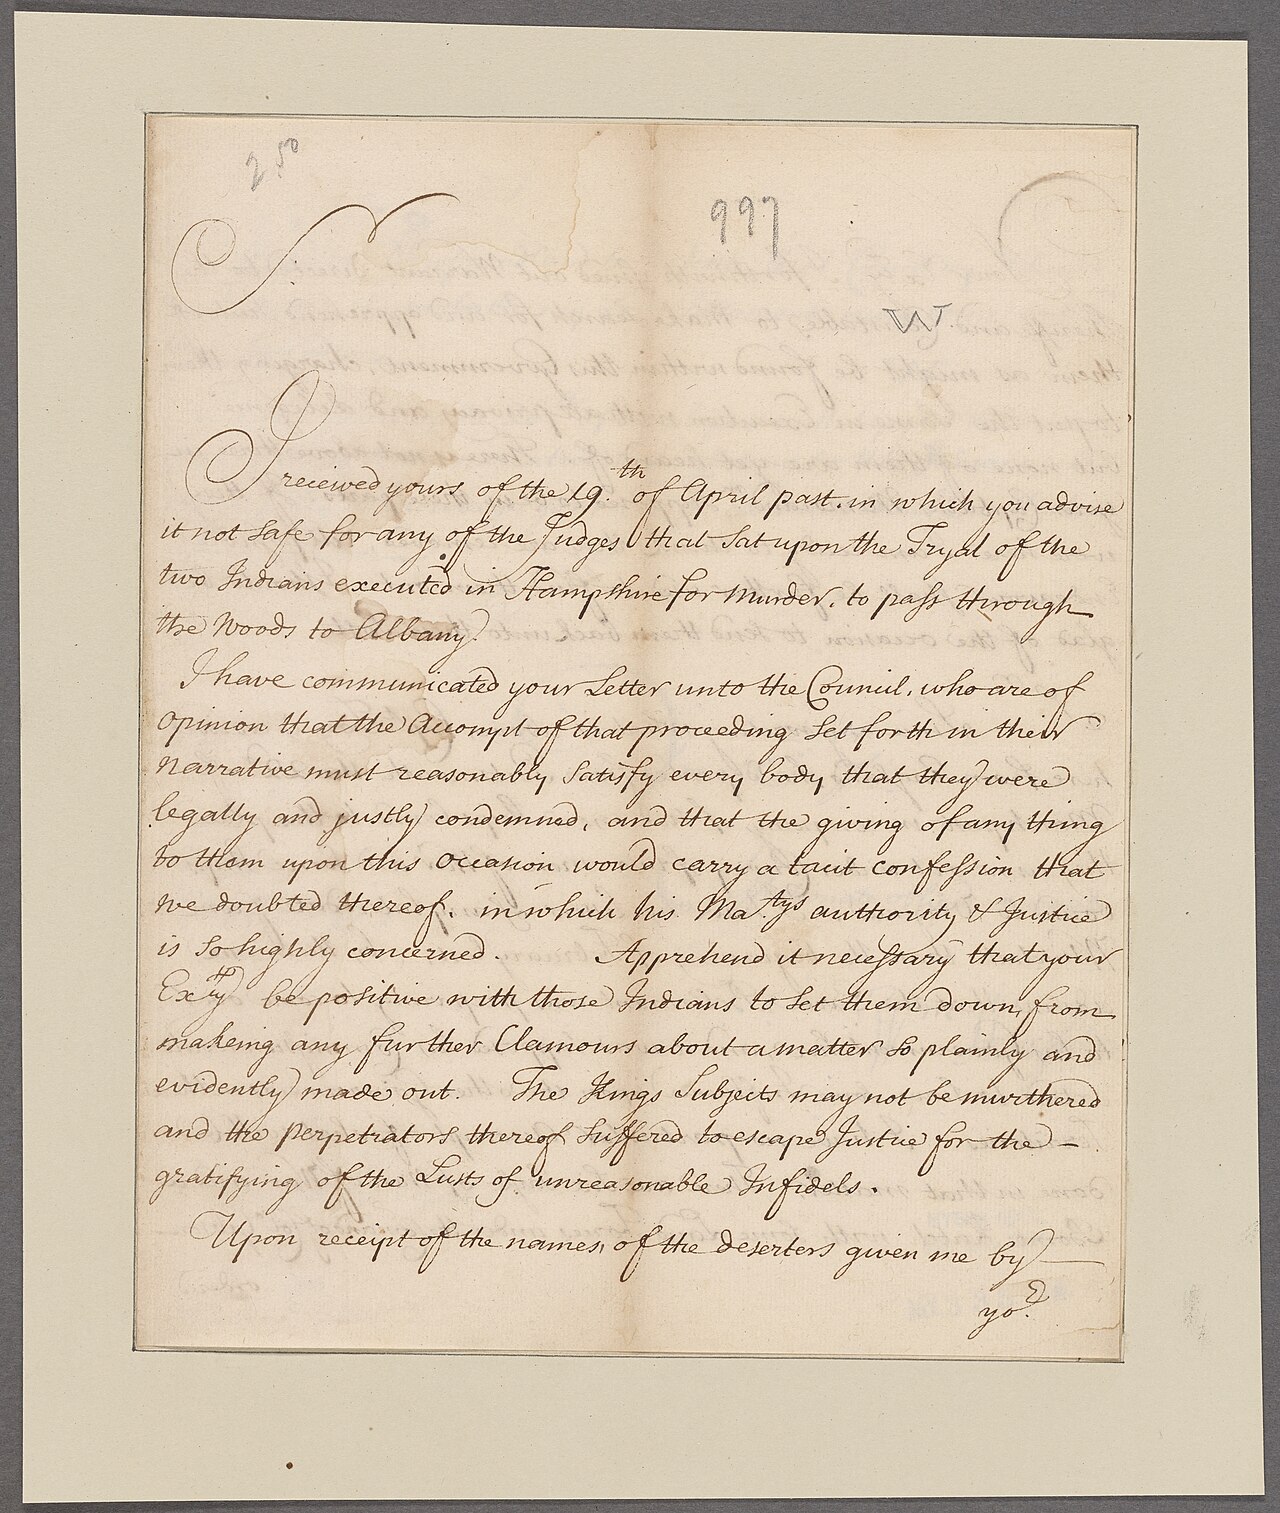 250
997
Sr:
W
I received yours of the 19.th of April past. in which you advise
it not safe for any of the Judges that Sat upon the Tryal of the
two Indians executed in Hampshire for Murder. to pass through
the Woods to Albany.
I have communicated your Letter unto the Council. who are of
Opinion that the Accompt of that proceeding Set forth in their
Narrative must reasonably Satisfy every body that they were
legally and justly condemned, and that the giving of any thing
to them upon this Occasion would carry a tacit confession that
we doubted thereof. in which his Ma.tys authority & Justice
is so highly concerned. Apprehend it necessary that your
Excy be positive with those Indians to Set them down from
makeing any further Clamours about a matter so plainly and
evidently made out. The Kings Subjects may not be murthered
and the perpetrators thereof Suffered to escape Justice for the –
gratifying of the Lusts of unreasonable Infidels.
Upon receipt of the names, of the deserters given me by
yo.E